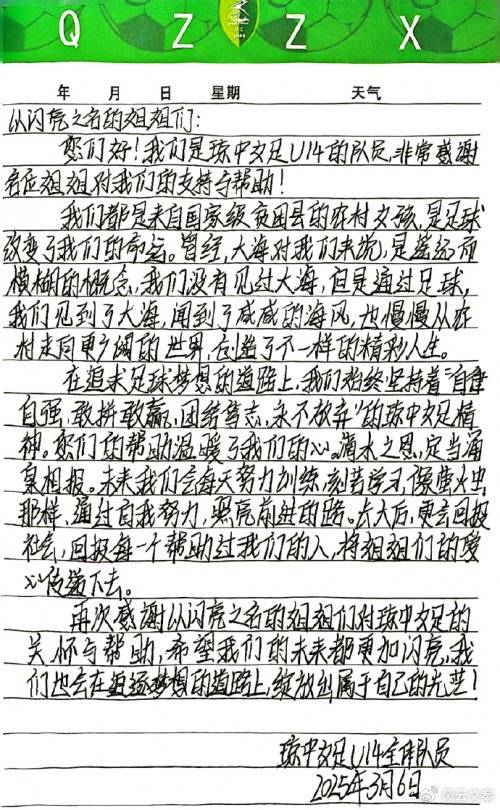 QZZX
年 月 日 星期 天气
以闪亮之名的姐姐们：
您们好！我们是琼中女足U14的队员，非常感谢
各位姐姐对我们的支持与帮助！
我们都是来自国家级贫困县的农村女孩，是足球
改变了我们的命运。曾经，大海对我们来说，是遥远而
模糊的概念，我们没有见过大海，但是通过足球，
我们见到了大海，闻到了咸咸的海风，也慢慢从农
村走向更广阔的世界，创造了不一样的精彩人生。
在追求足球梦想的道路上，我们始终坚持着“自律
自强，敢拼敢赢，团结笃志，永不放弃”的琼中女足精
神。您们的帮助温暖了我们的心。滴水之恩，定当涌
泉相报。未来我们会每天努力训练，刻苦学习，像萤火虫
那样，通过自我努力，照亮前进的路。长大后，更会回报
社会，回报每一个帮助过我们的人，将姐姐们的爱
心传递下去。
再次感谢以闪亮之名的姐姐们对琼中女足的
关怀与帮助，希望我们的未来都更加闪亮，我
们也会在追逐梦想的道路上，绽放出属于自己的光芒！
琼中女足U14全体队员
2025年3月6日